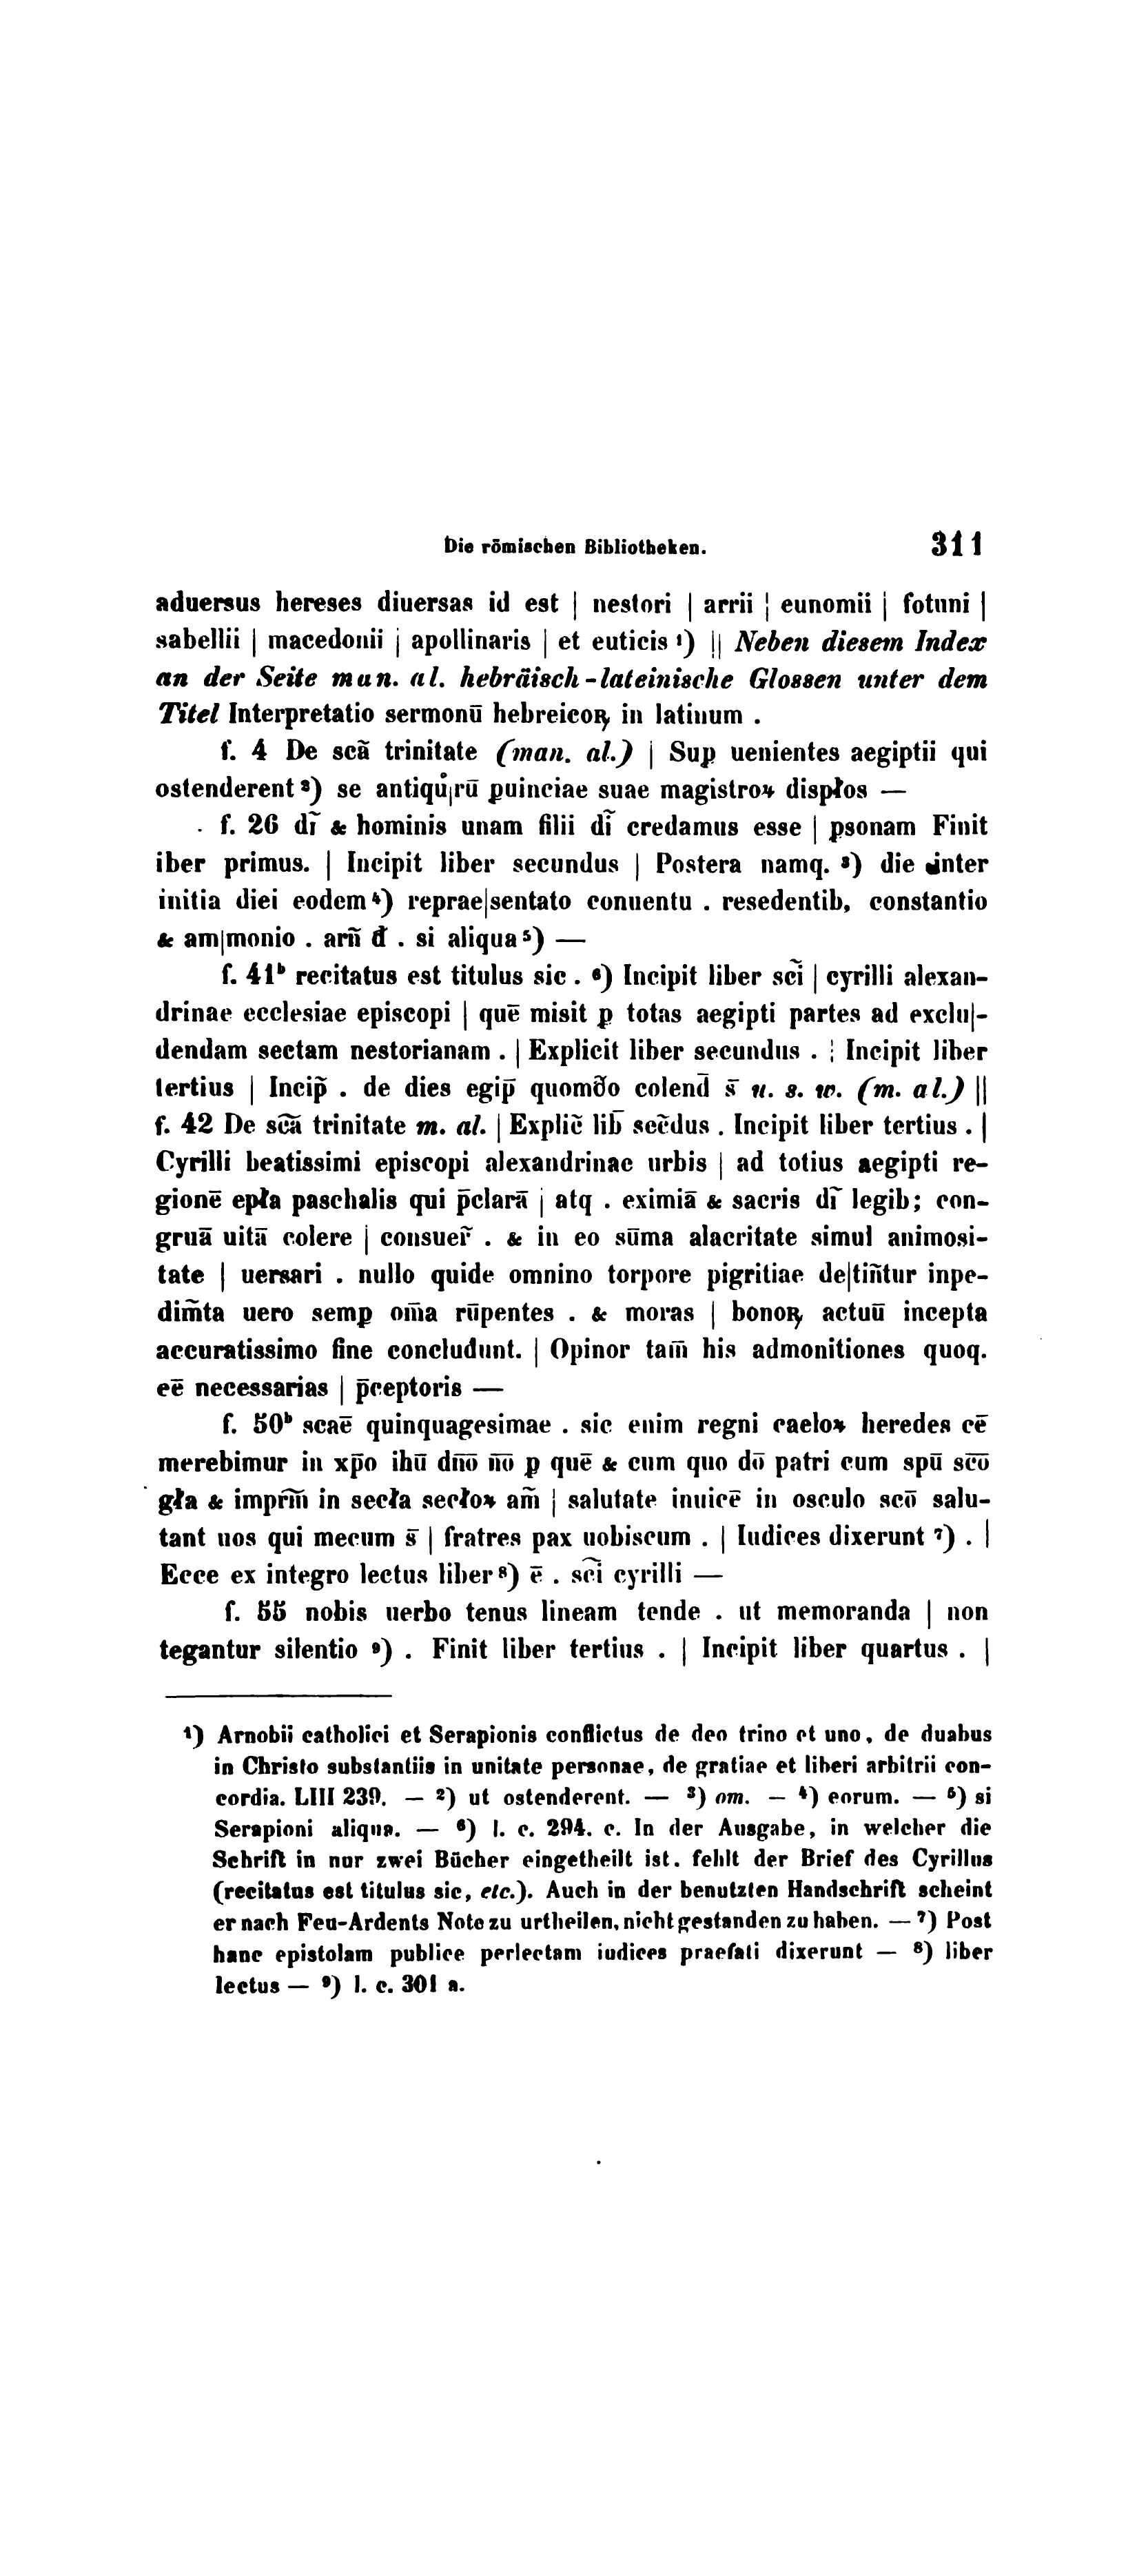 Die römischen Bibliotheken. 311
aduersus hereses diuersas id est | nestori | arrii | eunomii | fotuni |
sabellii | macedonii | apollinaris | et euticis ¹) || Neben diesem Index
an der Seite man. al. hebräisch-lateinische Glossen unter dem
Titel Interpretatio sermonū hebreicoꝝ in latinum .
f. 4 De scā trinitate (man. al.) | Suꝑ uenientes aegiptii qui
ostenderent ²) se antiqů|rū ꝑuinciae suae magistroꝝ dispłos —
f. 26 dı̃ & hominis unam filii dı̃ credamus esse | ꝑsonam Finit
iber primus. | Incipit liber secundus | Postera namq. ³) die inter
initia diei eodem ⁴) reprae|sentato conuentu . resedentib, constantio
& am|monio . arn̄ đ . si aliqua ⁵) —
f. 41ᵇ recitatus est titulus sic . ⁶) Incipit liber scı̃ | cyrilli alexan-
drinae ecclesiae episcopi | quē misit ꝑ totas aegipti partes ad exclu|-
dendam sectam nestorianam . | Explicit liber secundus . | Incipit liber
tertius | Incip̃ . de dies egip̄ quomðo colend̄ s̄ u. s. w. (m. al.) ||
f. 42 De scã trinitate m. al. | Explic̃ lib̄ sec̃dus . Incipit liber tertius . |
Cyrilli beatissimi episcopi alexandrinae urbis | ad totius aegipti re-
gionē epła paschalis qui p̄clarā | atq . eximiā & sacris dı̃ legib; con-
gruā uitā colere | consuer̃ . & in eo sūma alacritate simul animosi-
tate | uersari . nullo quide omnino torpore pigritiae de|tiñtur inpe-
dim̃ta uero semꝑ om̄a rūpentes . & moras | bonoꝝ actuū incepta
accuratissimo fine concludunt. | Opinor tam̄ his admonitiones quoq.
eē necessarias | p̄ceptoris —
f. 50ᵇ scaē quinquagesimae . sic enim regni caeloꝝ heredes eē
merebimur in xp̄o ihū dn̄o n̄o ꝑ quē & cum quo dō patri cum spū sc̄o
gła & impr̃m̃ in secła secłoꝝ am̃ | salutate inuicē in osculo scō salu-
tant uos qui mecum s̄ | fratres pax uobiscum . | Iudices dixerunt ⁷) . |
Ecce ex integro lectus liber ⁸) ē . sc̃i cyrilli —
f. 55 nobis uerbo tenus lineam tende . ut memoranda | non
tegantur silentio ⁹) . Finit liber tertius . | Incipit liber quartus . |
¹) Arnobii catholici et Serapionis conflictus de deo trino et uno, de duabus
in Christo substantiis in unitate personae, de gratiae et liberi arbitrii con-
cordia. LIII 239. — ²) ut ostenderent. — ³) om. — ⁴) eorum. — ⁵) si
Serapioni aliqua. — ⁶) l. c. 294. c. In der Ausgabe, in welcher die
Schrift in nur zwei Bücher eingetheilt ist. fehlt der Brief des Cyrillus
(recitatus est titulus sic, etc.). Auch in der benutzten Handschrift scheint
er nach Feu-Ardents Note zu urtheilen, nicht gestanden zu haben. — ⁷) Post
hanc epistolam publice perlectam iudices praefati dixerunt — ⁸) liber
lectus — ⁹) l. c. 301 a.